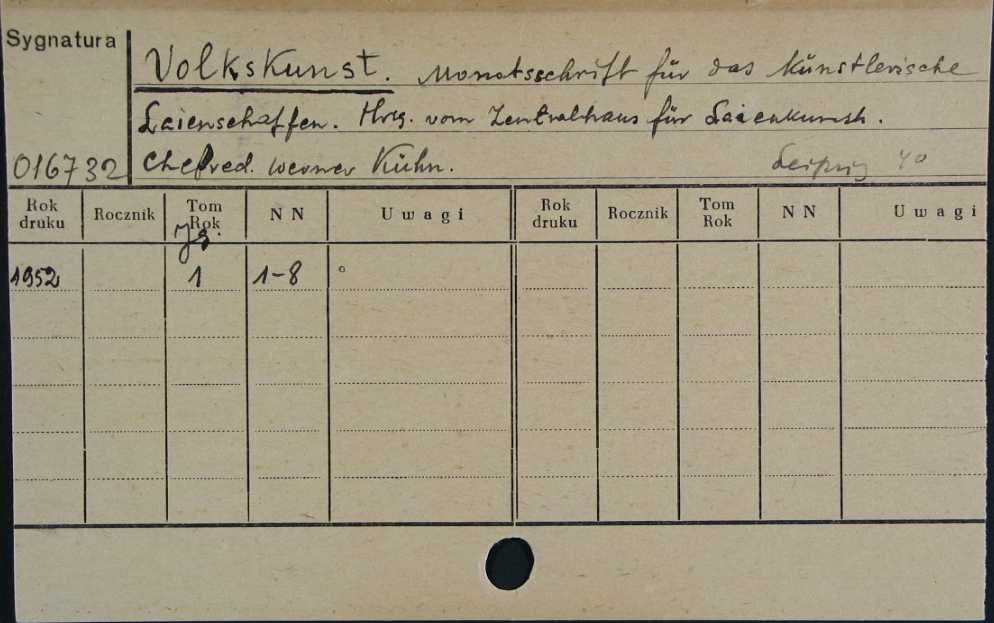 Sygnatura
Volkskunst. Monatsschrift für das künstlerische
Laienschaffen. Hrsg. vom Zentralhaus für Laienkunst.
016732 Chefred. Werner Kühn. Leipzig 4°
Rok druku Rocznik Tom Rok NN Uwagi Rok druku Rocznik Tom Rok NN Uwagi
Jg.
1952 1 1-8 °